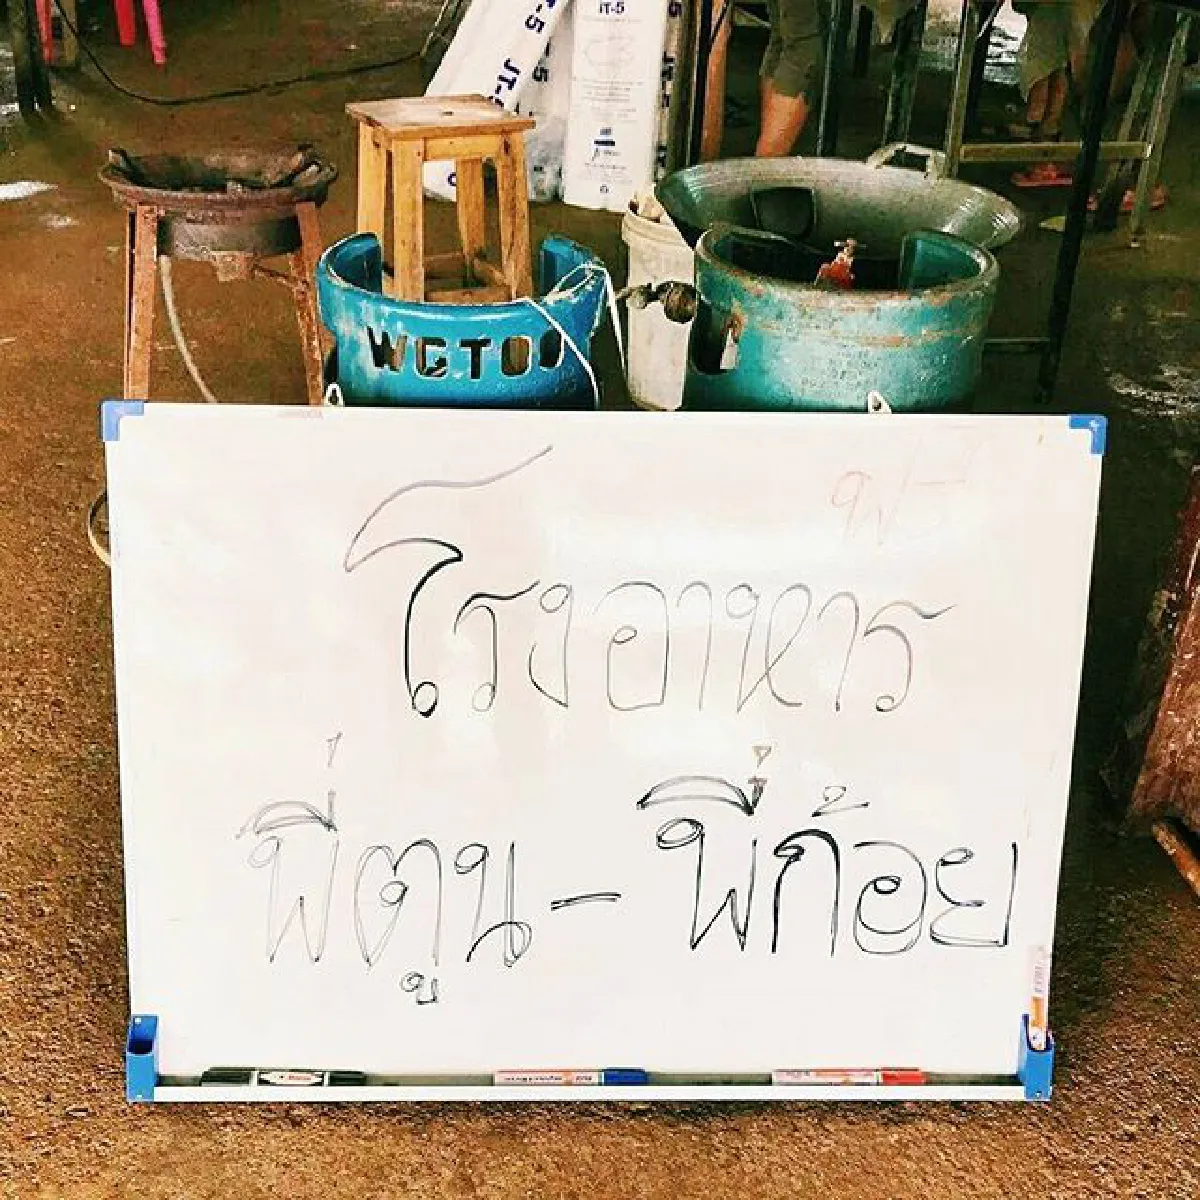 IT-5
JT-5
WGTOO
โรงอาหาร
พี่ตูน - พี่ก้อย